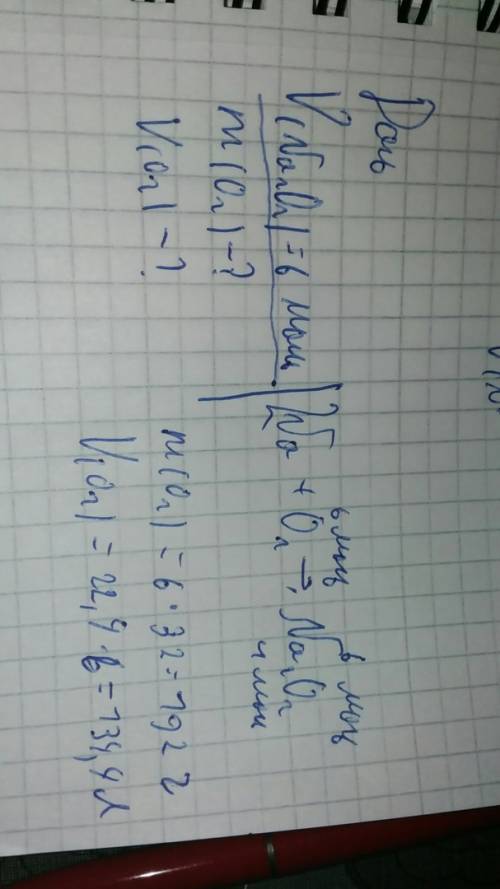 Дано
V(Na₂O₂) = 6 моль
m(O₂) - ?
V(O₂) - ?
6 моль 6 моль
2Na + O₂ → Na₂O₂
1 моль
m(O₂) = 6·32 = 192 г
V(O₂) = 22,4·6 = 134,4 л